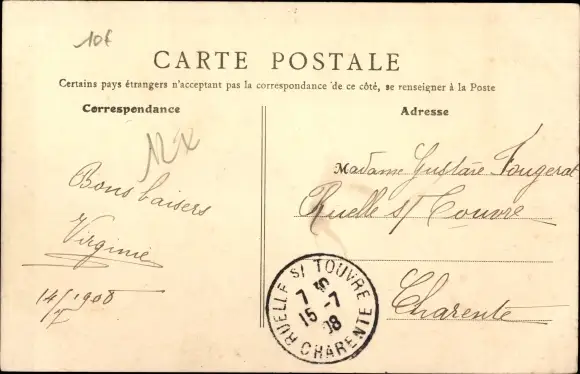 10f
CARTE POSTALE
Certains pays étrangers n'acceptant pas la correspondance de ce côté, se renseigner à la Poste
Correspondance
Adresse
Bons baisers
Virginie
14/ 1908
Madame Gustave Fougerat
Ruelle s/ Touvre
Charente
RUELLE S/ TOUVRE
7
15 -7
08
CHARENTE